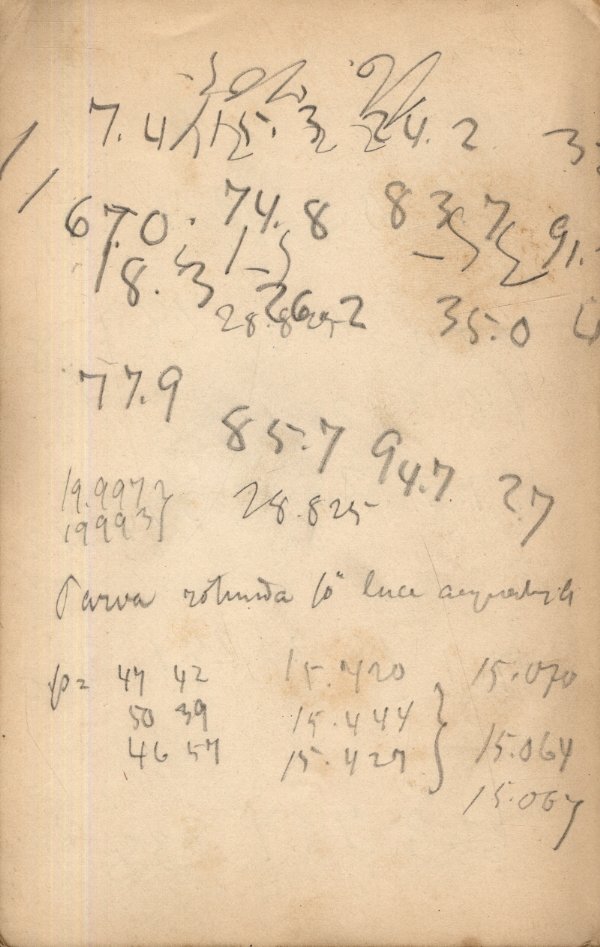 7.4 15.3 24.2
67.0 74.8 83.7 91.
18.3 26.2 35.0
28.825
77.9
85.7 94.7 27
19.9972
19993
28.825
Parva rotunda 10" luce aequabili
p= 47 42 15.420 15.070
50 39 15.444
46 57 15.427 15.064
15.067